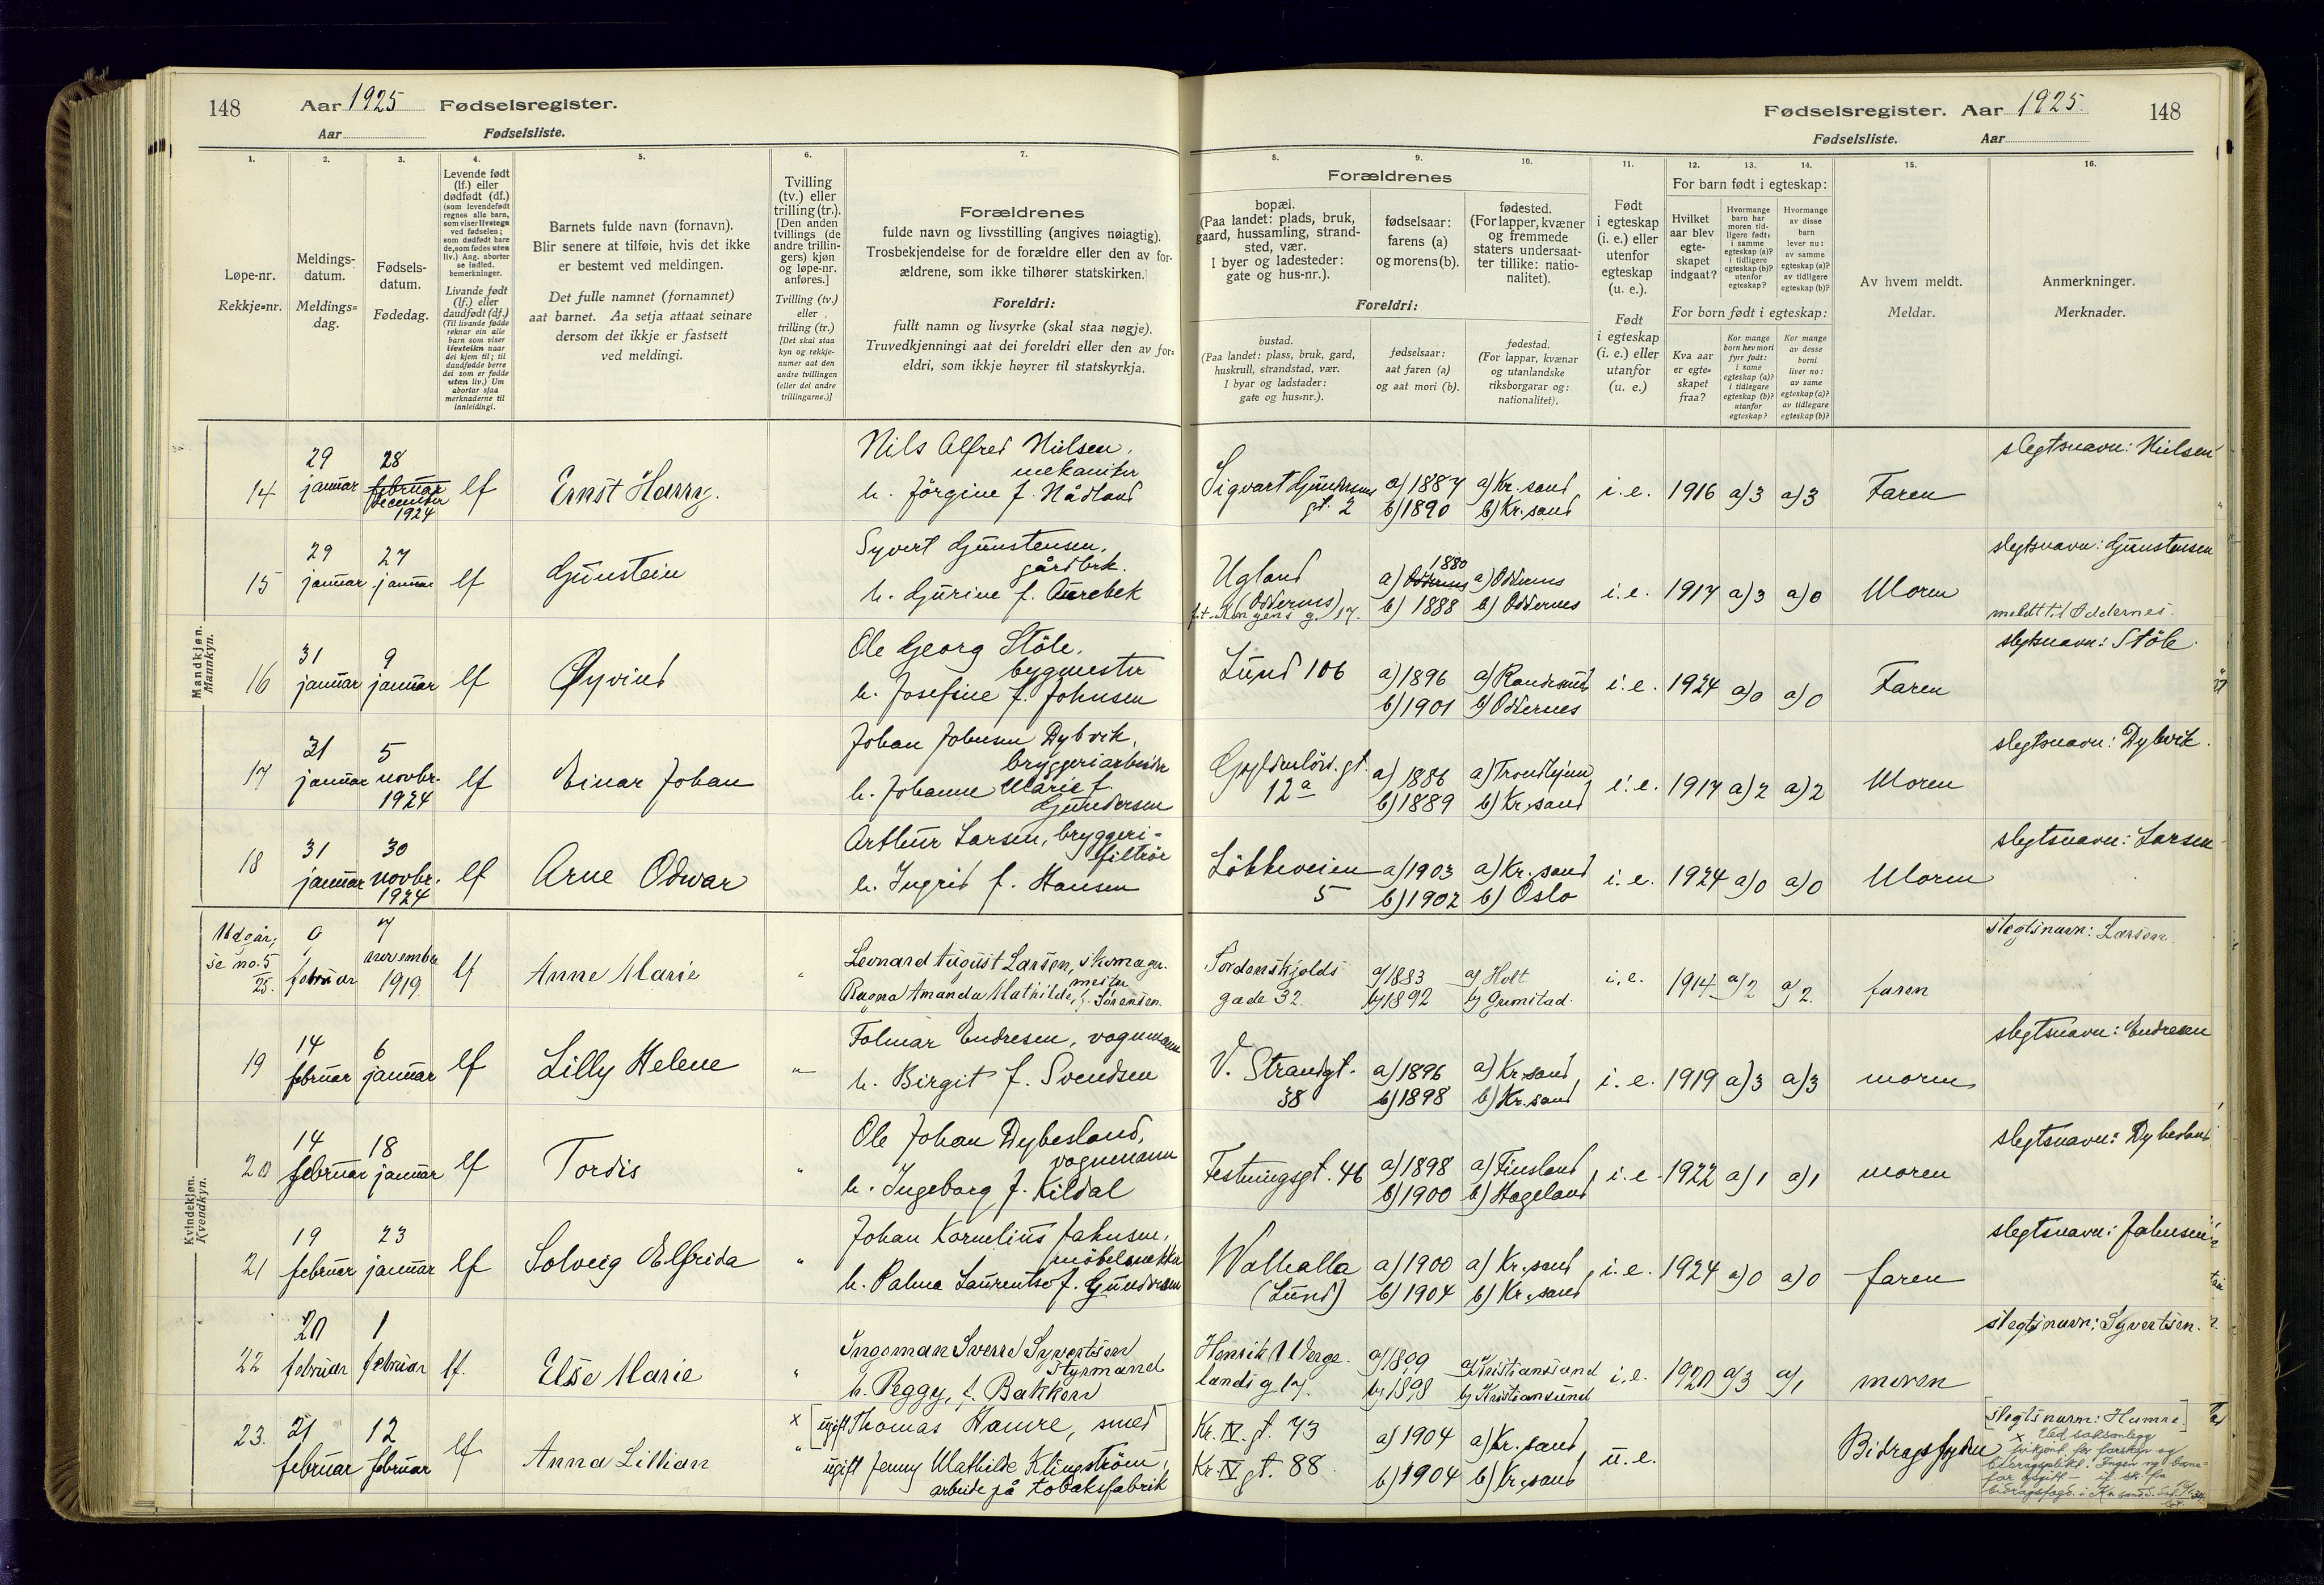 148 Aar 1925 Fødselsregister.
Aar Fødselsliste.
Fødselsregister. Aar 1925. 148
Fødselsliste. Aar
1. 2. 3. 4. 5. 6. 7. 8. 9. 10. 11. 12. 13. 14. 15. 16.
Løpe-nr.
Rekkje-nr.
Meldings-
datum.
Meldings-
dag.
Fødsels-
datum.
Fødedag.
Levende født
(lf.) eller
dødfødt (df.)
(som levendefødt
regnes alle barn,
som viser livstegn
ved fødselen;
som dødfødt bare
de, som fødes uten
liv.) Ang. aborter
se indled.
bemerkninger.
Livande født
(lf.) eller
daudfødt (df.)
(Til livande fødde
reknar ein alle
barn som viser
livsteikn naar
dei kjem til; til
daudfødde berre
dei som er fødde
utan liv.) Um
abortar sjaa
merknaderne til
innleidingi.
Barnets fulde navn (fornavn).
Blir senere at tilføie, hvis det ikke
er bestemt ved meldingen.
Det fulle namnet (fornamnet)
aat barnet. Aa setja attaat seinare
dersom det ikkje er fastsett
ved meldingi.
Tvilling
(tv.) eller
trilling (tr.).
[Den anden
tvillings (de
andre trillin-
gers) kjøn
og løpe-nr.
anføres.]
Tvilling (tv.)
eller
trilling (tr.)
[Det skal staa
kyn og rekkje-
numer aat den
andre tvillingen
(eller dei andre
trillingarne.)]
Forældrenes
fulde navn og livsstilling (angives nøiagtig).
Trosbekjendelse for de forældre eller den av for-
ældrene, som ikke tilhører statskirken.
Foreldri:
fullt namn og livsyrke (skal staa nøgje).
Truvedkjenningi aat dei foreldri eller den av for-
eldri, som ikkje høyrer til statskyrkja.
Forældrenes
bopæl.
(Paa landet: plads, bruk,
gaard, hussamling, strand-
sted, vær.
I byer og ladesteder:
gate og hus-nr.).
fødselsaar:
farens (a)
og morens (b).
fødested.
(For lapper, kvæner
og fremmede
staters undersaat-
ter tillike: natio-
nalitet).
Foreldri:
bustad.
(Paa landet: plass, bruk, gard,
huskrull, strandstad, vær.
I byar og ladstader:
gate og hus-nr.).
fødselsaar:
aat faren (a)
og aat mori (b).
fødestad.
(For lappar, kvænar
og utanlandske
riksborgarar og:
nationalitet).
Født
i egteskap
(i. e.) eller
utenfor
egteskap
(u. e.).
Født
i egteskap
(i. e.) eller
utanfor
(u. e.)
For barn født i egteskap:
Hvilket
aar blev
egte-
skapet
indgaat?
Hvormange
barn har
moren tid-
ligere født:
i samme
egteskap (a)?
i tidligere
egteskap (b)?
utenfor
egteskap?
Hvormange
av disse
barn
lever nu:
av samme
egteskap (a)?
av tidligere
egteskap (b)?
For born født i egteskap:
Kva aar
er egte-
skapet
fraa?
Kor mange
born hev mori
fyrr født:
i same
egteskap (a)?
i tidlegare
egteskap (b)?
utanfor
egteskap?
Kor mange
av desse
borni
liver no:
av same
egteskap (a)?
av tidlegare
egteskap (b)?
Av hvem meldt.
Meldar.
Anmerkninger.
Merknader.
Mandkjøn.
Mannkyn.
14 29 januar 28 februar december 1924 lf Ernst Harry. Nils Alfred Nielsen, mekaniker
h. Jörgine f. Nådland Sigvart Gundersens gt. 2 a) 1887 b) 1890 a) Kr.sand b) Kr.sand i. e. 1916 a) 3 a) 3 Faren slegtsnavn: Nielsen
15 29 januar 27 januar lf Gunstein Syvert Gunstensen, gårdbrk.
h. Gurine f. Aurebek Ugland (Oddernes) f.t. Kongens g. 17. a) Oddernes 1880 b) 1888 a) Oddernes b) Oddernes i. e. 1917 a) 3 a) 0 Moren slegtsnavn: Gunstensen
meldt til Oddernes.
16 31 januar 9 januar lf Øyvind Ole Georg Stöle, bygmester
h. Josefine f. Johnsen Lund 106 a) 1896 b) 1901 a) Randesund b) Oddernes i. e. 1924 a) 0 a) 0 Faren slegtsnavn: Stöle.
17 31 januar 5 novbr. 1924 lf Einar Johan Johan Johnsen Dybvik, bryggeriarbeider
h. Johanne Marie f. Gundersen Gyldenlöws.gt. 12a a) 1886 b) 1889 a) Trondhjem b) Kr.sand i. e. 1917 a) 2 a) 2 Moren slegtsnavn: Dybvik.
18 31 januar 30 novbr. 1924 lf Arne Odwar Arthur Larsen, bryggeri-
filtrör
h. Ingrid f. Hansen Lökkeveien 5 a) 1903 b) 1902 a) Kr.sand b) Oslo i. e. 1924 a) 0 a) 0 Moren slegtsnavn: Larsen
Kvindekjøn.
Kvendkyn.
Udgår; se no. 5 25. februar 7 november 1919. lf Anne Marie " Leonard August Larsen, skomager-
mester
Ragna Amanda Mathilde, f. Sørensen. Tordenskjolds gade 32. a) 1883 b) 1892 a) Holt b) Grimstad. i. e. 1914 a) 2 a) 2. faren slegtsnavn: Larsen.
19 14 februar 6 januar lf Lilly Helene " Folmar Endresen, vognmann
h. Birgit f. Svendsen V. Strandgt. 38 a) 1896 b) 1898 a) Kr.sand b) Kr.sand i. e. 1919 a) 3 a) 3 moren slegtsnavn: Endresen
20 14 februar 18 januar lf Tordis " Ole Johan Dybesland, vognmann
h. Ingeborg f. Kildal Festningsgt. 46 a) 1898 b) 1900 a) Finsland b) Hægeland i. e. 1922 a) 1 a) 1 moren slegtsnavn: Dybesland
21 19 februar 23 januar lf Solveig Elfrida " Johan Kornelius Jahnsen, möbelsnekker
h. Palma Laurentse f. Gundersen Walhalla (Lund) a) 1900 b) 1904 a) Kr.sand b) Kr.sand i. e. 1924 a) 0 a) 0 faren slegtsnavn: Jahnsen
22 20 februar 1 februar lf. Else Marie " Ingeman Sverre Syvertsen Styrmand
h. Peggy, f. Bakken Henrik Werge-
lands g 17. b) 1898 a) Kristiansand b) Kristiansund i. e. 1920 a) 3 a) 1 moren slegtsnavn: Syvertsen.
23. 21 februar 12 februar lf Anna Lillian x " [ugift Thomas Hamre, smed]
ugift Jenny Mathilde Klingström,
arbeide på tobaksfabrik Kr. IV. gt. 73
Kr. IV gt. 88 a) 1904 b) 1904 a) Kr.sand b) Kr.sand u. e. Bidragsfogden [slegtsnavn: Hamre]
x Ved saksanlegg
frikjent for farskap og
bidragsplikt. Ingen ny barne-
far opgitt
bidragsfogd. i Kr.sand